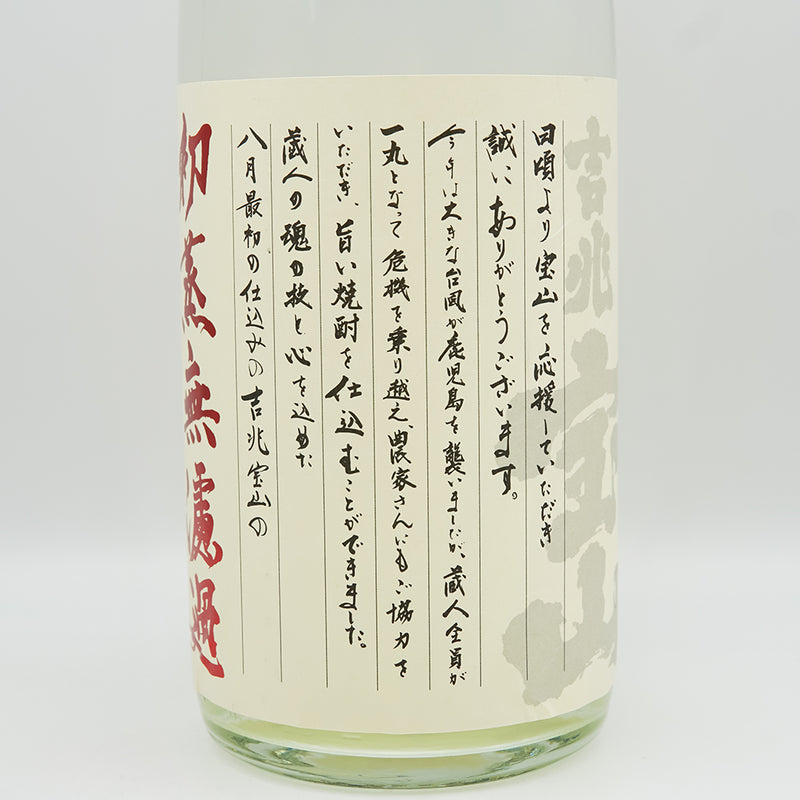 吉兆
宝山
日頃より宝山を応援していただき
誠にありがとうございます。
今年は大きな台風が鹿児島を襲いましたが、蔵人全員が
一丸となって危機を乗り越え、農家さんにもご協力を
いただき、旨い焼酎を仕込むことができました。
蔵人の魂の技と心を込めた
八月最初の仕込みの吉兆宝山の
初蒸無濾過